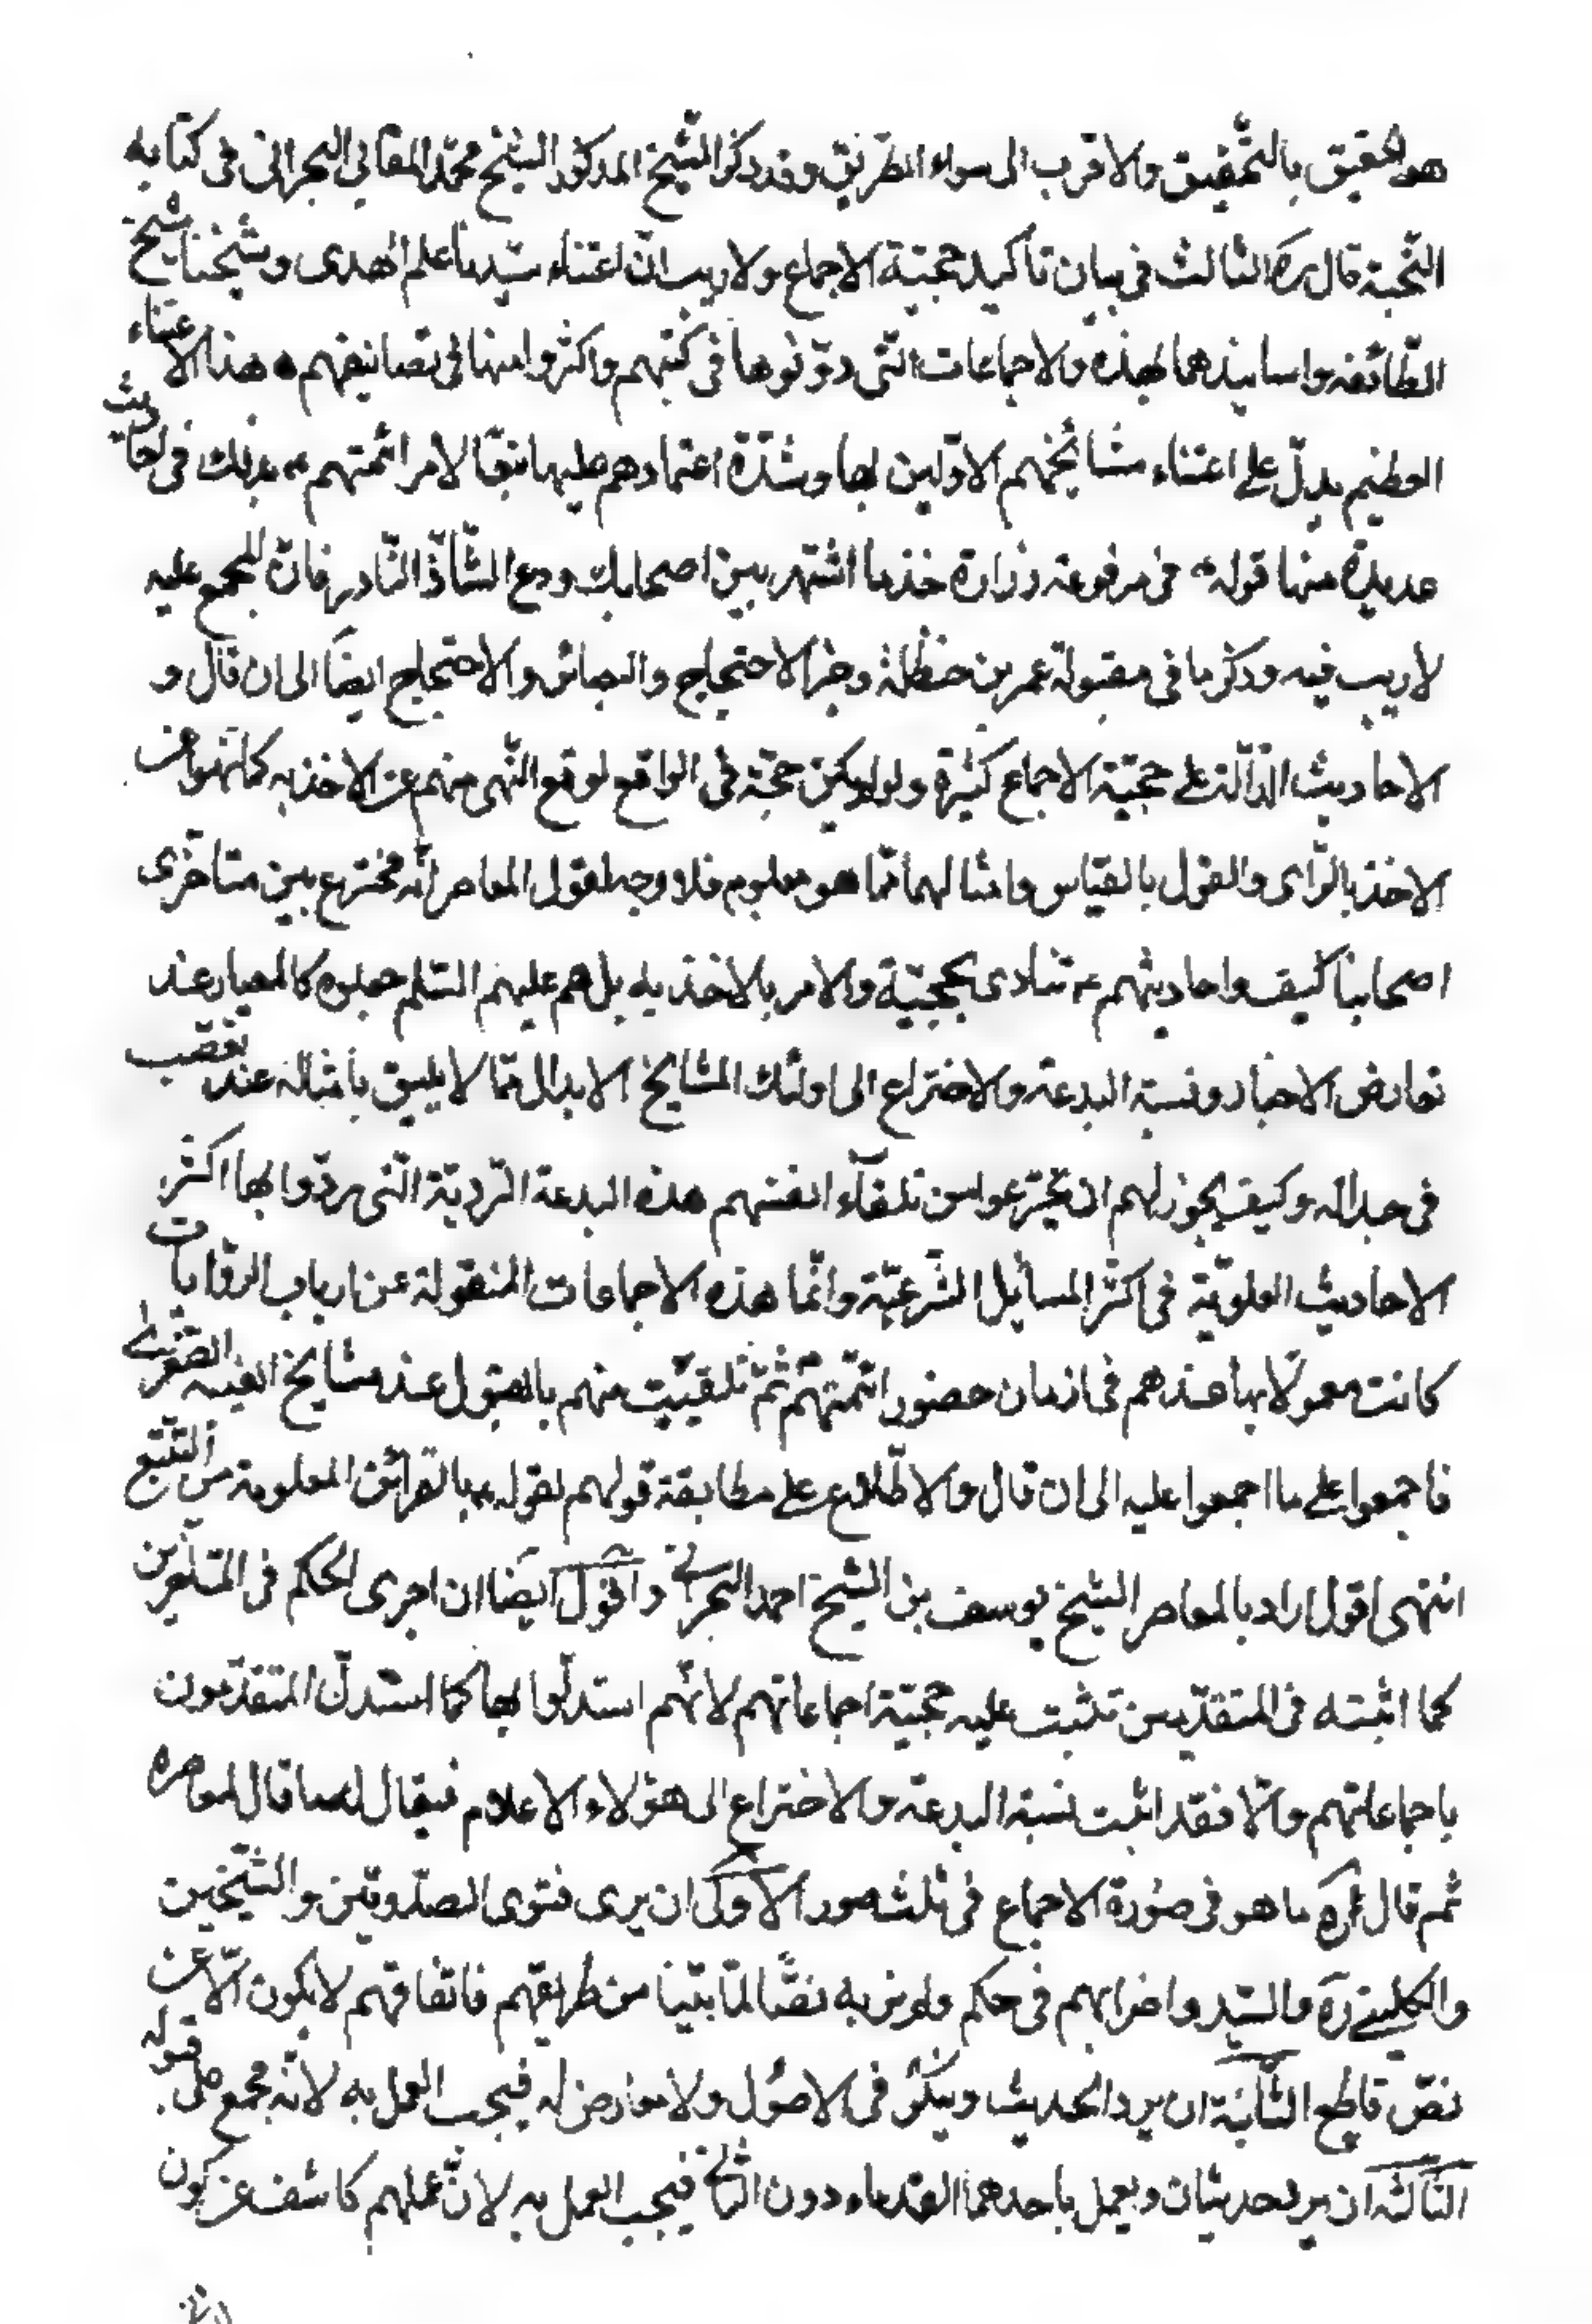 هو الحقيق بالتحقيق والاقرب الى سواء الطريق وقد ذكر الشيخ المذكور الشيخ محمّد المقابي البحراني في كتابه
النّخبة قال ره الثالث في بيان تأكيد حجيّة الاجماع ولا ريب انّ اعتناء سيّدنا علم الهدى وشيخنا شيخ
الطّائفه واساتيذهما بهذه والاجماعات الّتي دوّنوها في كتبهم واكثروا منها في تصانيفهم هذا الاعتناء
العظيم يدلّ على اعتناء مشائخهم الاوّلين بها وشدّة اعتمادهم عليها تبعًا لامر ائمتهم ع بذلك في احاديث
عديدة منها قوله ع في مرفوعة زرارة خذ بما اشتهر بين اصحابك ودع الشّاذّ النّادر فانّ المجمع عليه
لا ريب فيه وذكر ما في مقبولة عمر بن حنظلة وخبر الاحتجاج والبصائر والاحتجاج ايضًا الى ان قال و
الاحاديث الدّالّة على حجيّة الاجماع كثيرة ولو لم يكن حجّة في الواقع لوقع النّهى منهم عن الاخذ به كما نهوا عن
الاخذ بالرّاى والقول بالقياس وامثالهما ممّا هو معلوم فلا وجه لقول المعاصر انّه مخترع بين متاخّرى
اصحابنا كيف واحاديثهم ع تنادى بحجيّة والامر بالاخذ به بل هم عليهم السّلم جعلوه كالمعيار عند
تعارض الاخبار ونسبة البدعة والاختراع الى اولئك المشايخ الابدال ممّا لا يليق بأمثاله عند تعصّب
في جداله وكيف يجوز لهم ان يخترعوا من تلقآء انفسهم هذه البدعة الرّديّة الّتي يردّوا بها اكثر
الاحاديث العلويّة في اكثر المسائل الشّرعيّة وانّما هذه الاجماعات المنقولة عن ارباب الرّوايات
كانت معمولا بها عندهم في ازمان حضور ائمّتهم ع ثمّ تلقيت منهم بالقبول عند مشايخ الغيبه الصّغرى
فاجمعوا على ما اجمعوا عليه الى ان قال والاطّلاع على مطابقة قولهم لقوله ع بالقرائن المعلومة من التتبّع
انتهى اقول اراد بالمعاصر الشيخ يوسف بن الشيخ احمد البحراني واقول ايضًا ان اجرى الحكم في المتأخرين
كما اثبته في المتقدّمين تثبت عليه حجيّة اجماعاتهم لانّهم استدلّوا بها كما استدلّ المتقدّمون
باجماعاتهم والّا فقد اثبت نسبة البدعة والاختراع الى هؤلاء الاعلام فيقال له ما قال لمعاصره
ثم قال ره ما هو في صورة الاجماع في ثلث صور الاولى ان يرى فتوى الصدوقين والشّيخين
والكليني ره والسّيد واضرابهم في حكم ولم نر به نصًّا لما بيّنا من طرايقهم فاتفاقهم لا يكون الّا عن
نصّ قاطع الثّانية ان يرد الحديث ويتكرّر في الاصول ولا معارض له فيجب العمل به لانّه مجمع على قوله
الثّالثه ان يرد حديثان ويعمل باحدهما القدماء دون الثاني فيجب العمل به لانّ عملهم كاشف عن كون